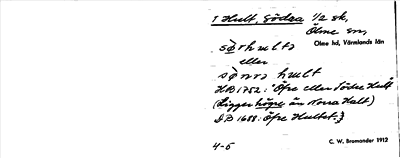 1 Hult, Södra 1/2 sk,
Ölme sn,
Ölme hd, Värmlands län
sörhulta
eller
sönra hult
HB 1752: Öfre eller Södre Hult
(Ligger högre än Norra Hult)
DB 1688: Öfre Hultet.}
4-5
C. W. Bromander 1912